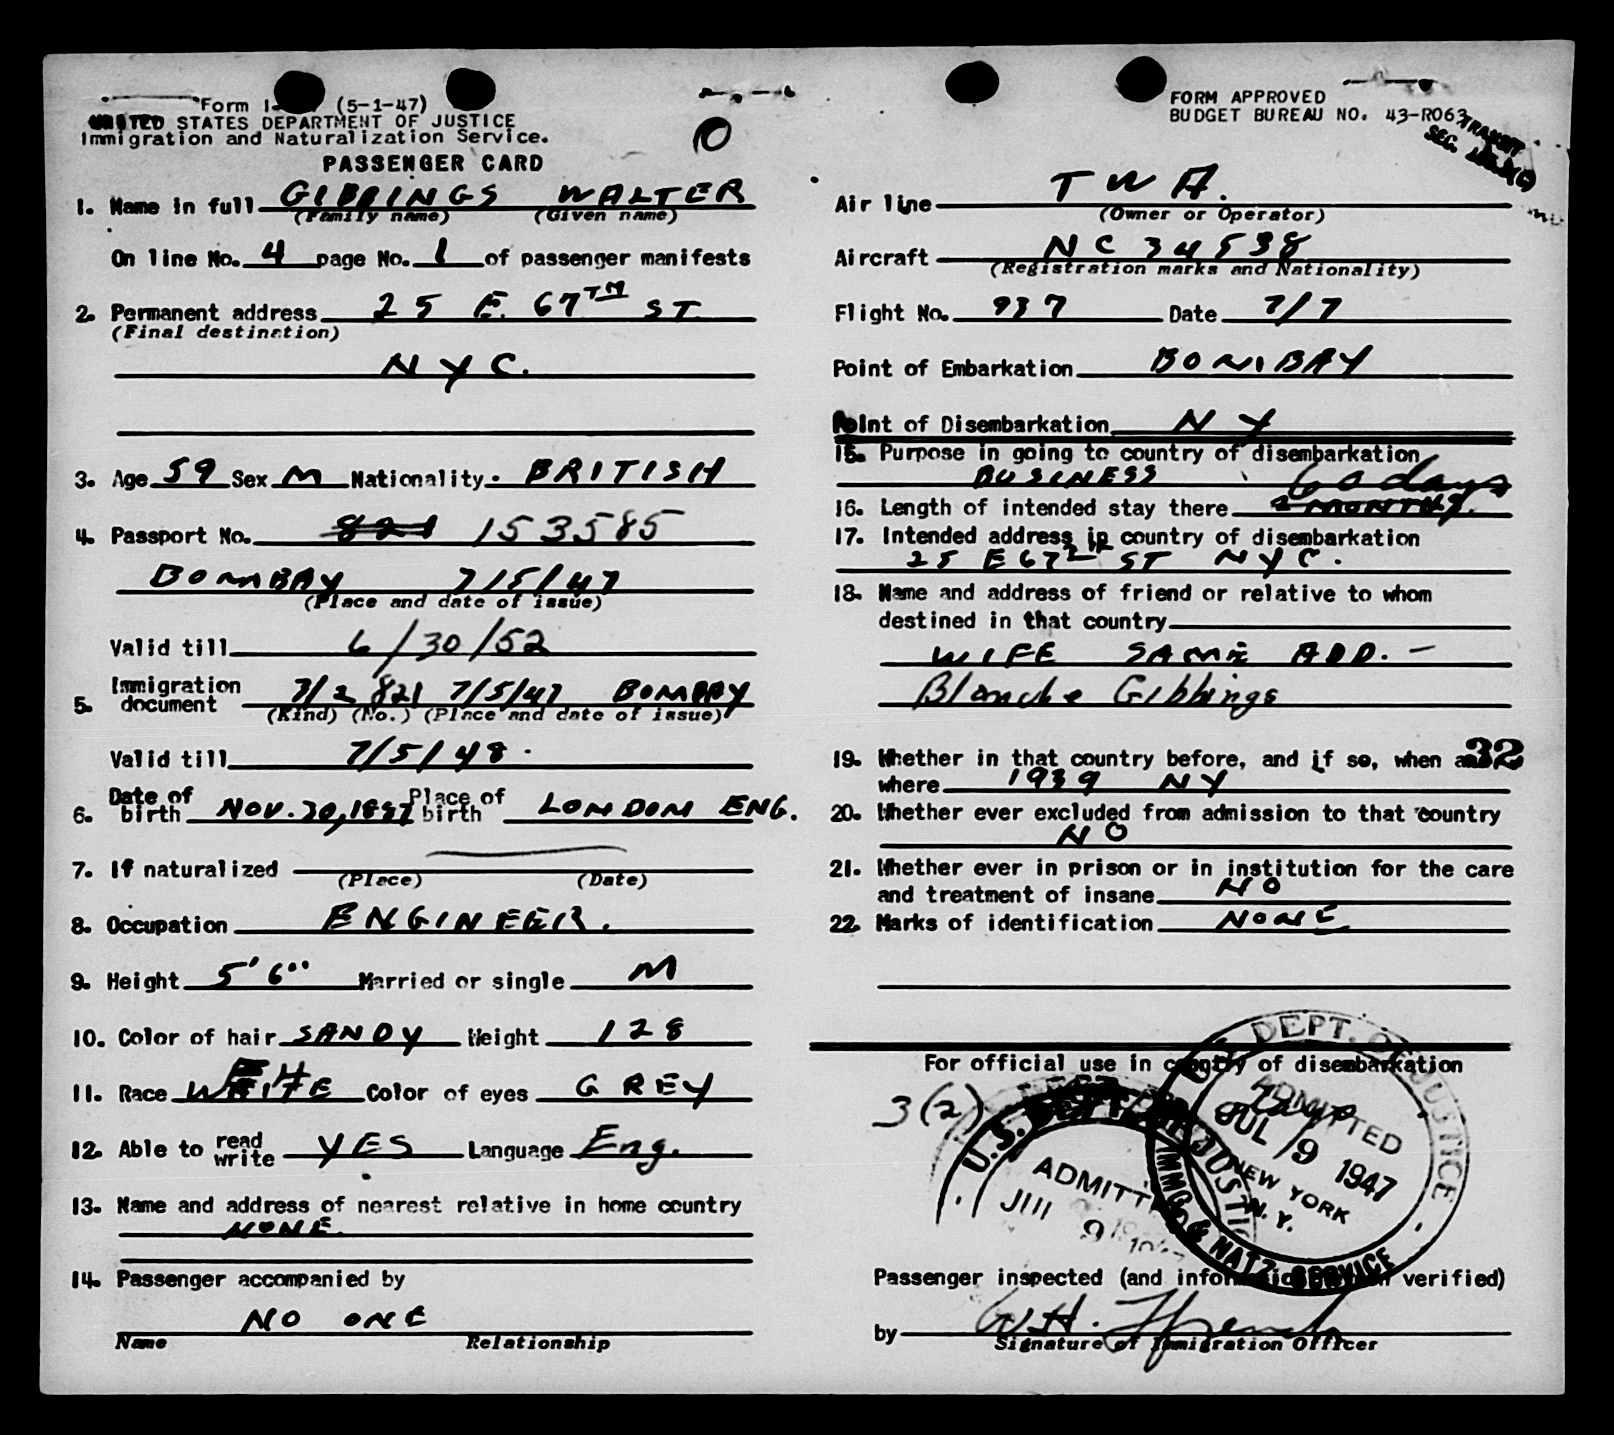 Form I- (5-1-47)
UNITED STATES DEPARTMENT OF JUSTICE
Immigration and Naturalization Service.
PASSENGER CARD
0
1. Name in full GIBBINGS WALTER
(Family name) (Given name)
On line No. 4 page No. 1 of passenger manifests
2. Permanent address 25 E. 67TH ST
(Final destination)
NYC.
3. Age 59 Sex M Nationality. BRITISH
4. Passport No. 821 153585
BOMBAY 7/5/47
(Place and date of issue)
Valid till 6/30/52
5. Immigration document 7/2 821 7/5/47 BOMBAY
(Kind) (No.) (Place and date of issue)
Valid till 7/5/48.
6. Date of birth NOV. 20, 1887 Place of birth LONDON ENG.
7. If naturalized
(Place) (Date)
8. Occupation ENGINEER.
9. Height 5' 6" Married or single M
10. Color of hair SANDY Weight 128
11. Race WHITE Color of eyes GREY
12. Able to read write YES Language Eng.
13. Name and address of nearest relative in home country
NONE.
14. Passenger accompanied by
NO ONE
Name Relationship
FORM APPROVED
BUDGET BUREAU NO. 43-R063
TRANSIT
SEC.
Air line TWA.
(Owner or Operator)
Aircraft NC 34538
(Registration marks and Nationality)
Flight No. 937 Date 7/7
Point of Embarkation BOMBAY
Point of Disembarkation NY
15. Purpose in going to country of disembarkation
BUSINESS 60 days
16. Length of intended stay there 2 MONTHS.
17. Intended address in country of disembarkation
25 E 67 ST NYC.
18. Name and address of friend or relative to whom
destined in that country
WIFE SAME ADD. -
Blanche Gibbings
19. Whether in that country before, and if so, when and 32
where 1939 NY
20. Whether ever excluded from admission to that country
NO
21. Whether ever in prison or in institution for the care
and treatment of insane NO
22. Marks of identification NONE
For official use in country of disembarkation
3(2)
U.S. DEPT. OF JUSTICE
ADMITTED
JUL 9 1947
U.S. DEPT. OF JUSTICE
ADMITTED
JUL 9 1947
NEW YORK
N.Y.
IMMG & NATZ SERVICE
Passenger inspected (and information verified)
by W.H.
Signature of Immigration Officer